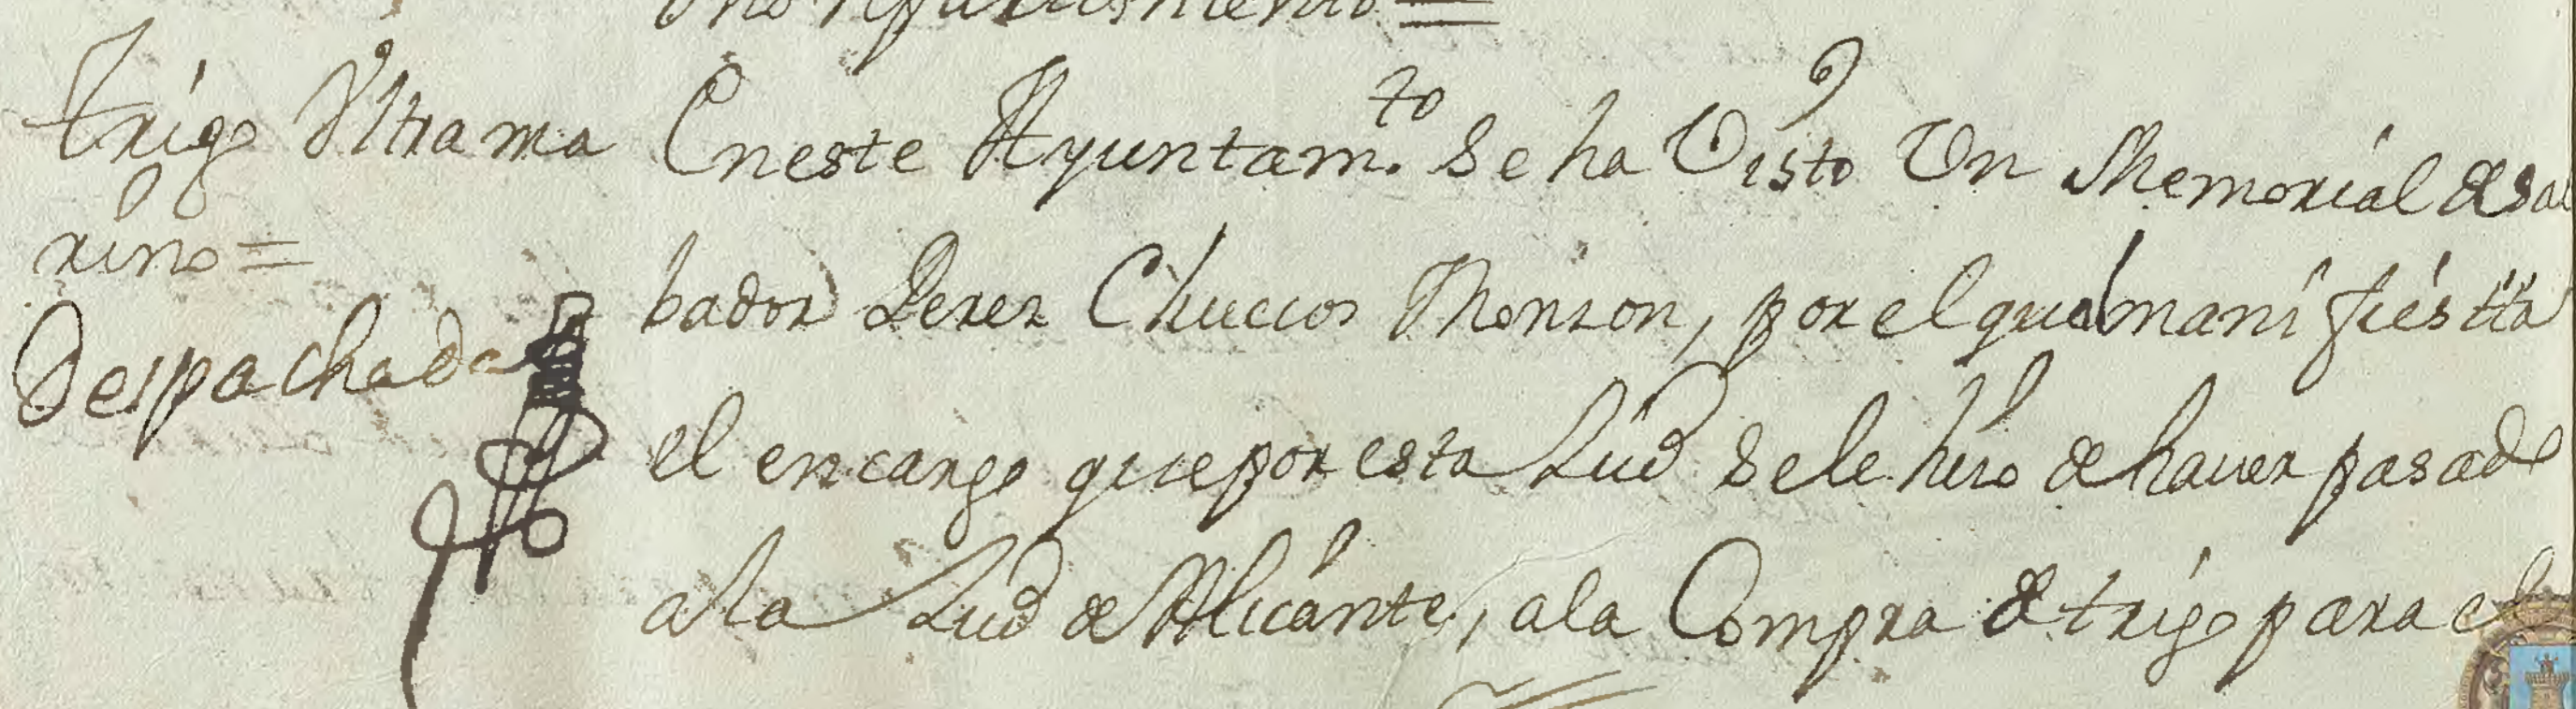 trigo Vltrama
rino =
Despachada
Eneste Ayuntam.to se ha Visto Vn Memorial de Sal
bador Perez Chuecos Monzon, por el qual manifiestta
el encargo que por esta Ziud se le hizo de hauer pasado
a la Ziud de Alicante, a la Compra de trigo para el